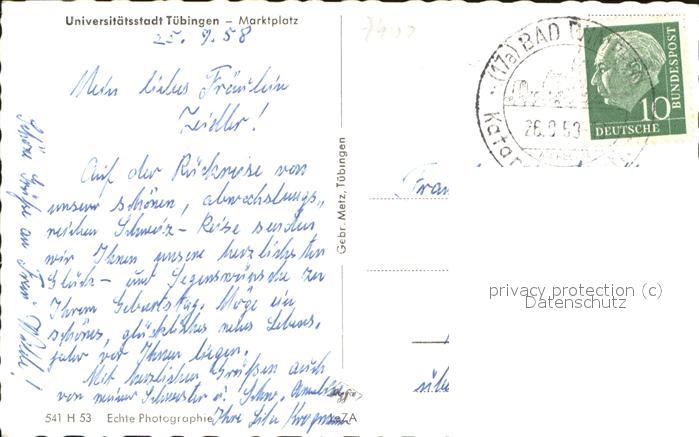 Universitätsstadt Tübingen – Marktplatz
25. 9. 58
Mein liebes Fräulein
Zeidler!
Auf der Rückreise von
unserer schönen, abwechslungs-
reichen Schweiz-Reise senden
wir Ihnen unsere herzlichsten
Glück- und Segenswünsche zu
Ihrem Geburtstag. Möge ein
schönes, glückliches neues Lebens-
jahr vor Ihnen liegen.
Mit herzlichen Grüßen auch
von meiner Schwester u. Schw.
Ihre
Schöne Grüße an Frau
541 H 53 Echte Photographie
Gebr. Metz, Tübingen
(17a) BAD
Katar
26.9.58
10
DEUTSCHE
BUNDESPOST
Frau
privacy protection (c)
Datenschutz